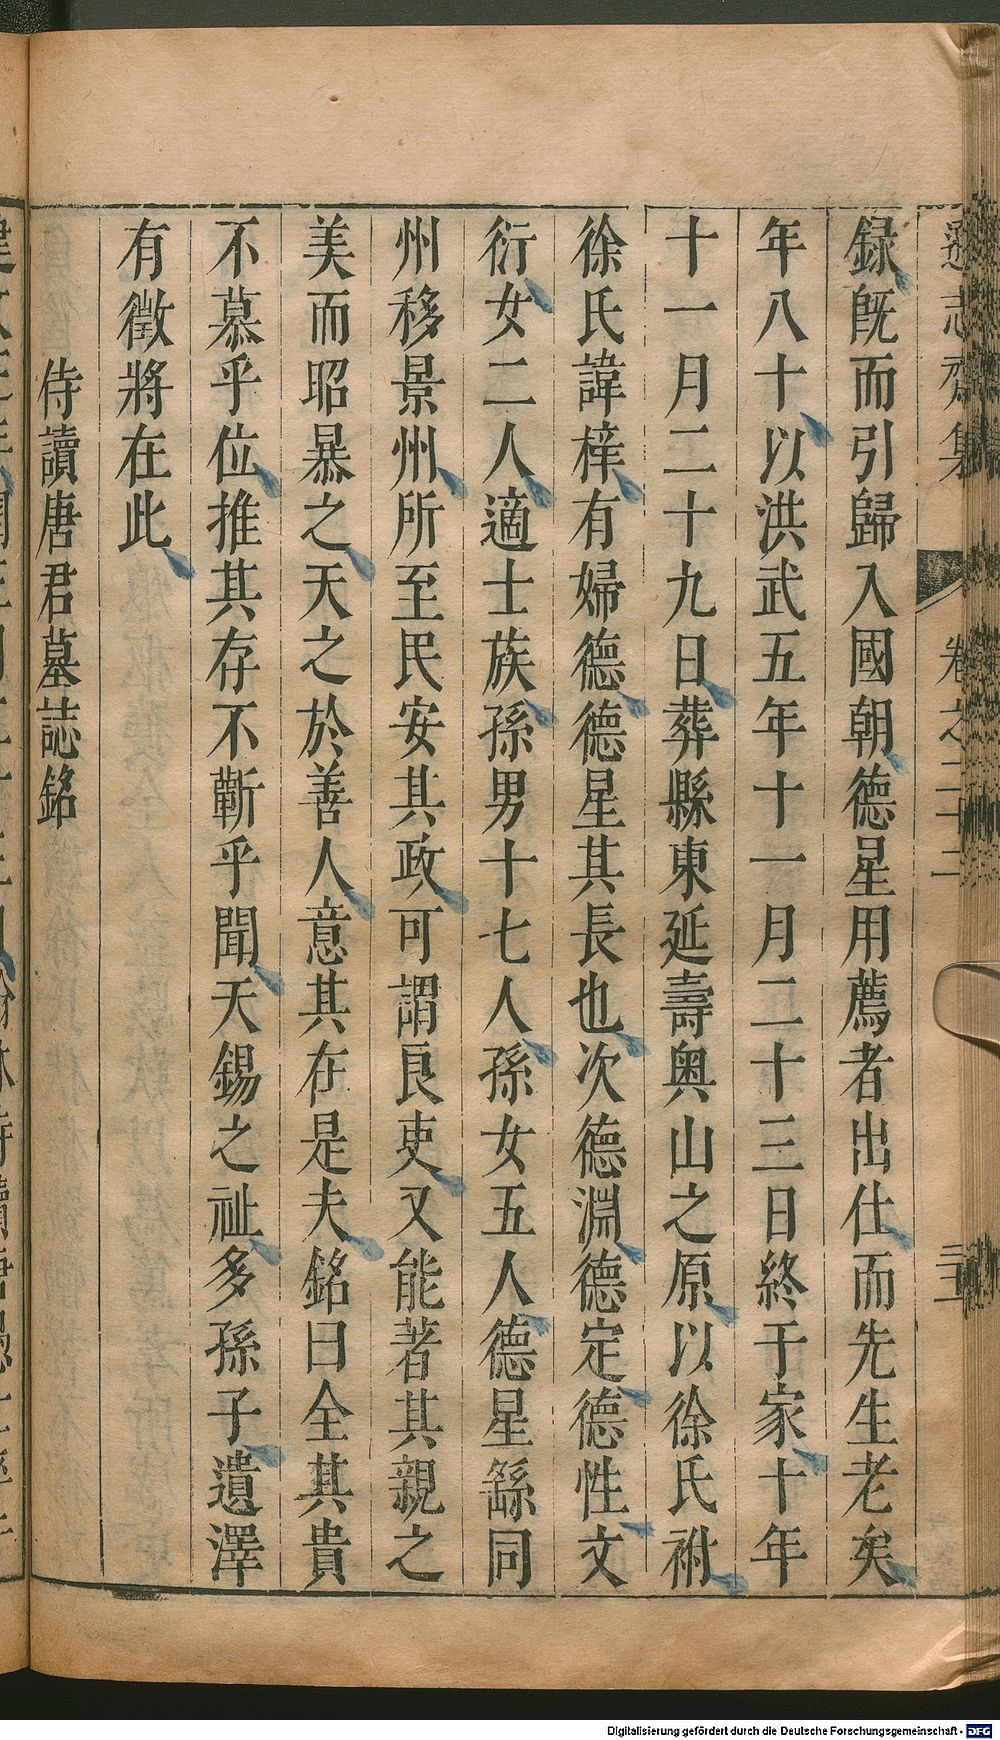 遜志齋集 卷之二十二
録旣而引歸入國朝德星用薦者出仕而先生老矣
年八十以洪武五年十一月二十三日終于家十年
十一月二十九日葬縣東延壽奥山之原以徐氏祔
徐氏諱檡有婦德德星其長也次德淵德定德性文
衍女二人適士族孫男十七人孫女五人德星繇同
州移景州所至民安其政可謂良吏又能著其親之
美而昭暴之天之於善人意其在是夫銘曰全其貴
不慕乎位推其存不蘄乎聞天錫之祉多孫子遺澤
有徵將在此
侍讀唐君墓誌銘
Digitalisierung gefördert durch die Deutsche Forschungsgemeinschaft - DFG